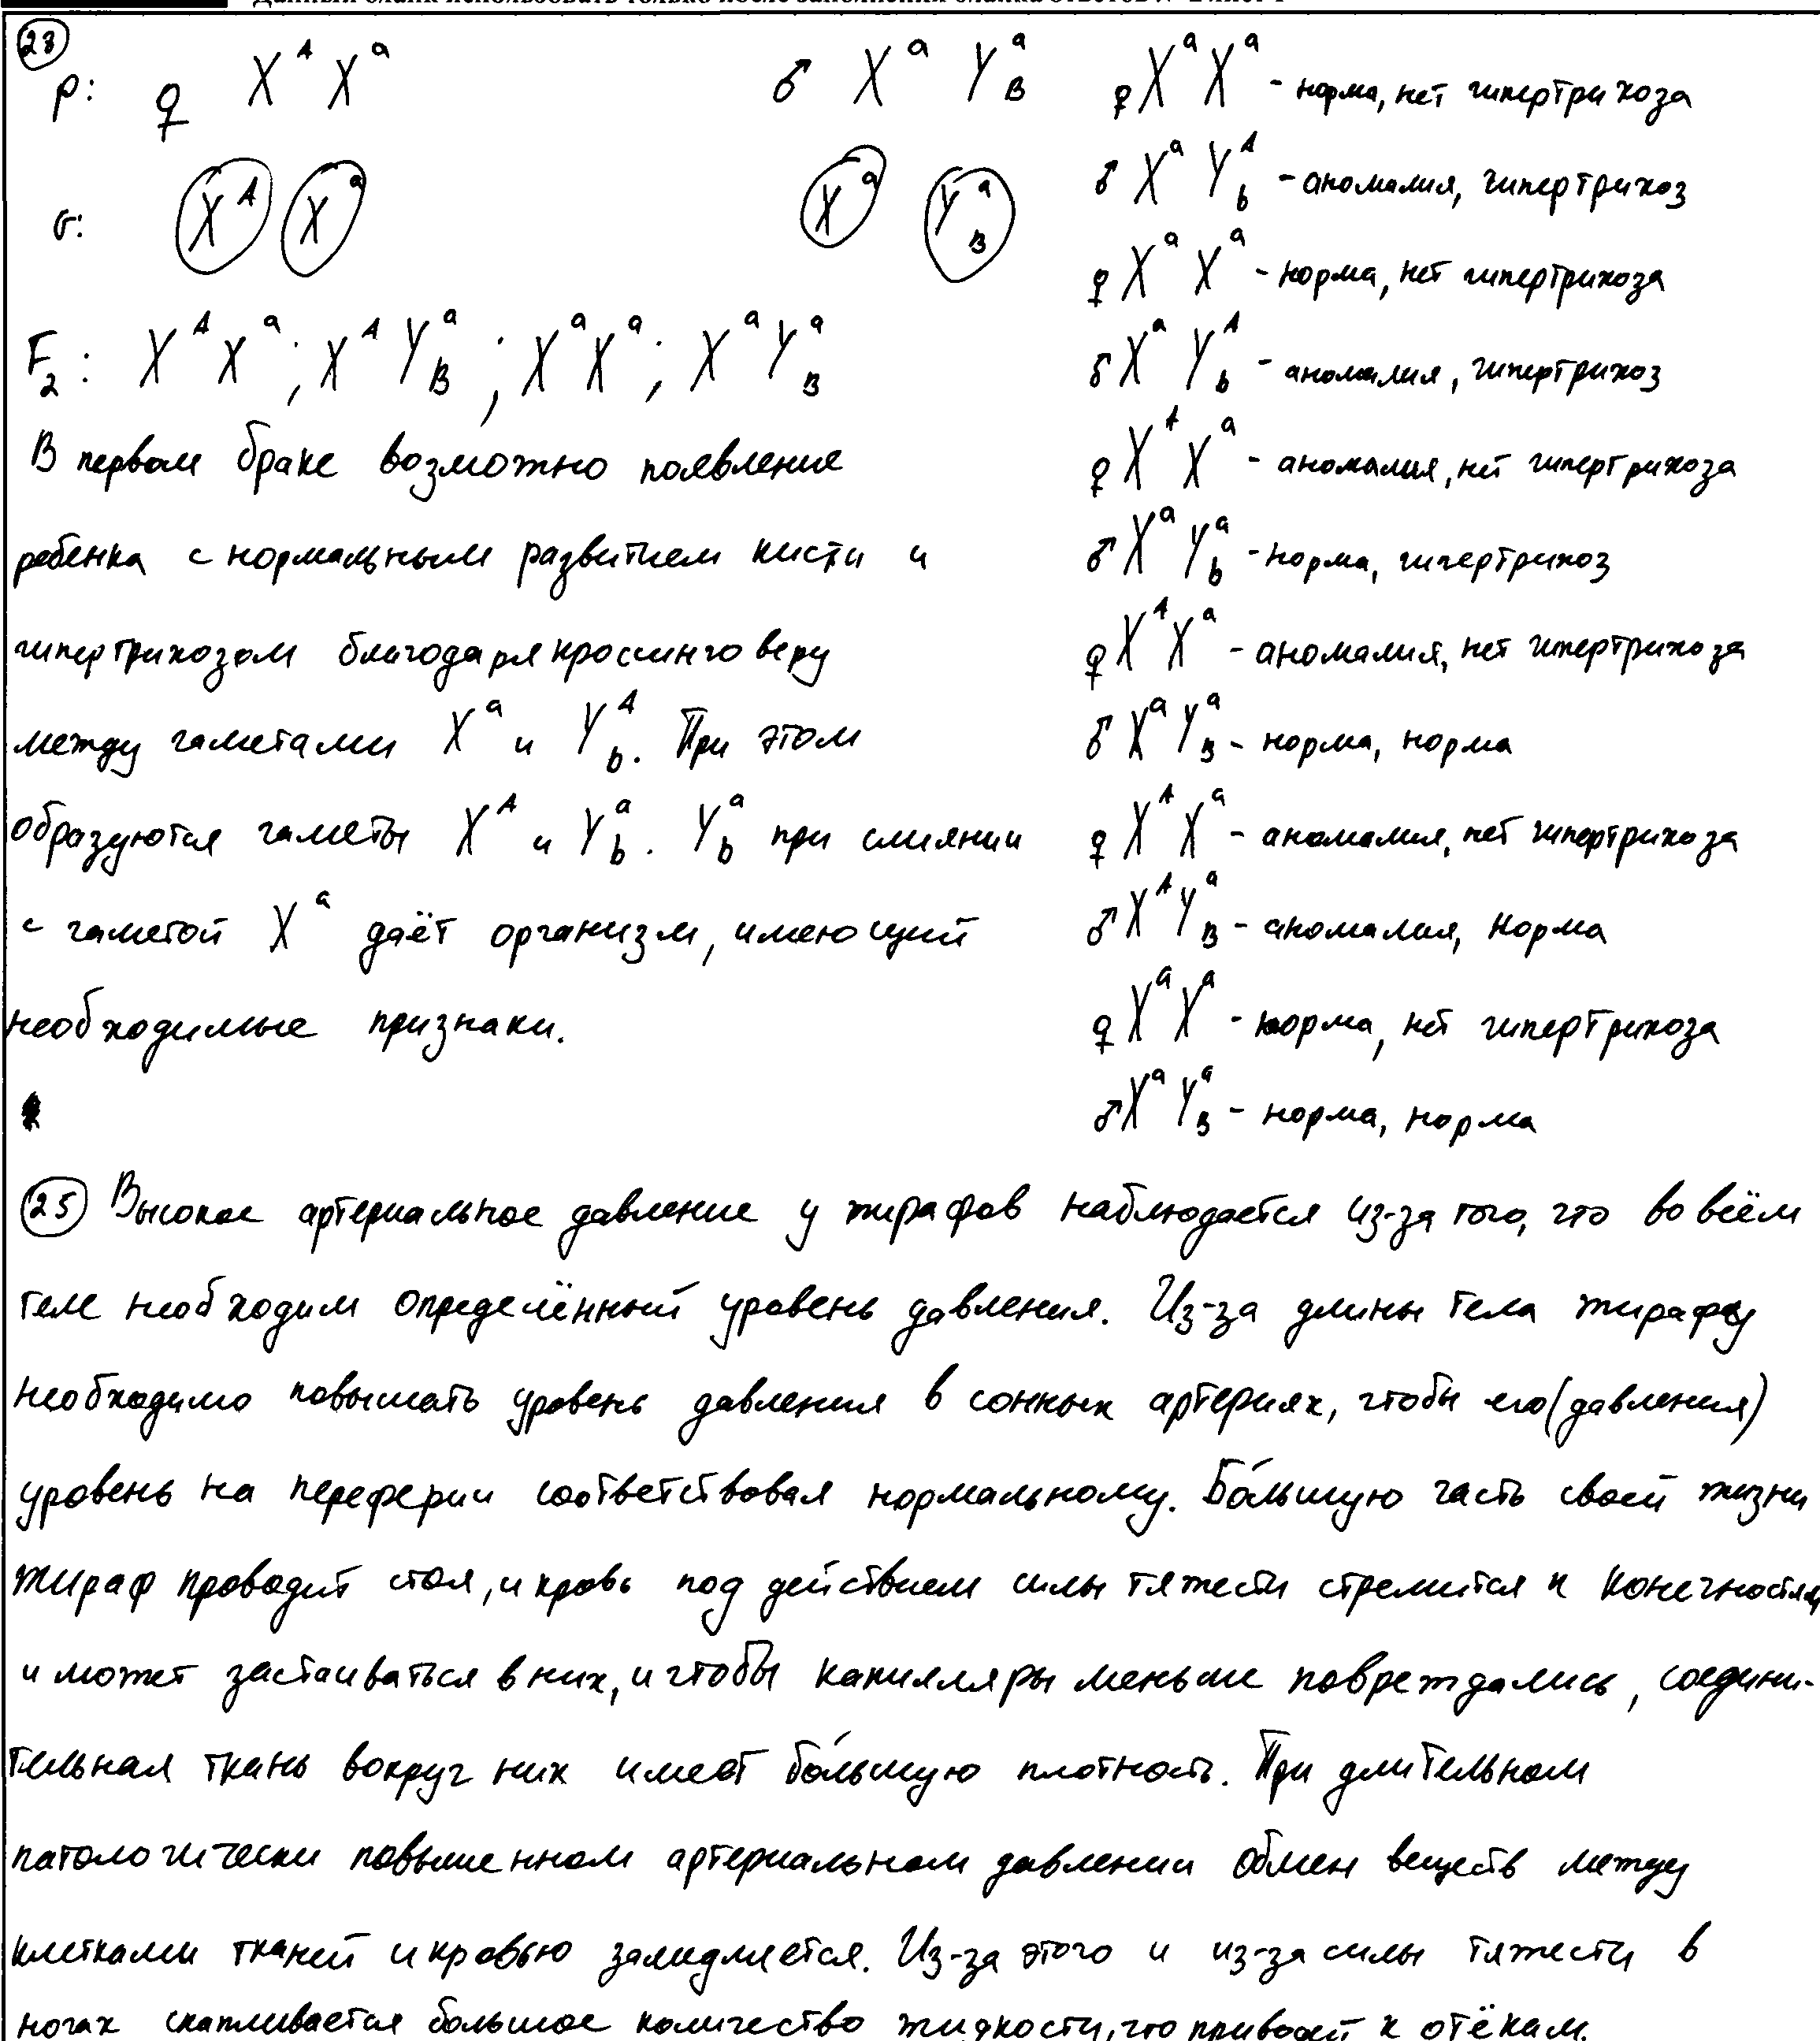 Данный бланк использовать только после заполнения бланка ответов № 2 лист 1
28
P: ♀ X^A X^a ♂ X^a Y^a_B
G: X^A X^a X^a Y^a_B
F2: X^A X^a; X^A Y^a_B; X^a X^a; X^a Y^a_B
В первом браке возможно появление
ребенка с нормальным развитием кисти и
гипертрихозом благодаря кроссинговеру
между гаметами X^a и Y^A_b. При этом
образуются гаметы X^A и Y^a_b. Y^a_b при слиянии
с гаметой X^a даёт организм, имеющий
необходимые признаки.
♀ X^a X^a - норма, нет гипертрихоза
♂ X^a Y^A_b - аномалия, гипертрихоз
♀ X^a X^a - норма, нет гипертрихоза
♂ X^a Y^A_b - аномалия, гипертрихоз
♀ X^A X^a - аномалия, нет гипертрихоза
♂ X^a Y^a_b - норма, гипертрихоз
♀ X^A X^a - аномалия, нет гипертрихоза
♂ X^a Y^a_B - норма, норма
♀ X^A X^a - аномалия, нет гипертрихоза
♂ X^A Y^a_B - аномалия, норма
♀ X^a X^a - норма, нет гипертрихоза
♂ X^a Y^a_B - норма, норма
25 Высокое артериальное давление у жирафов наблюдается из-за того, что во всём
теле необходим определённый уровень давления. Из-за длины тела жирафу
необходимо повышать уровень давления в сонных артериях, чтобы его (давления)
уровень на переферии соответствовал нормальному. Бо́льшую часть своей жизни
жираф проводит стоя, и кровь под действием силы тяжести стремится к конечностям
и может застаиваться в них, и чтобы капилляры меньше повреждались, соедини-
тельная ткань вокруг них имеет бо́льшую плотность. При длительном
патологически повышенном артериальном давлении обмен веществ между
клетками тканей и кровью замедляется. Из-за этого и из-за силы тяжести в
ногах скапливается большое количество жидкости, что приводит к отёкам.